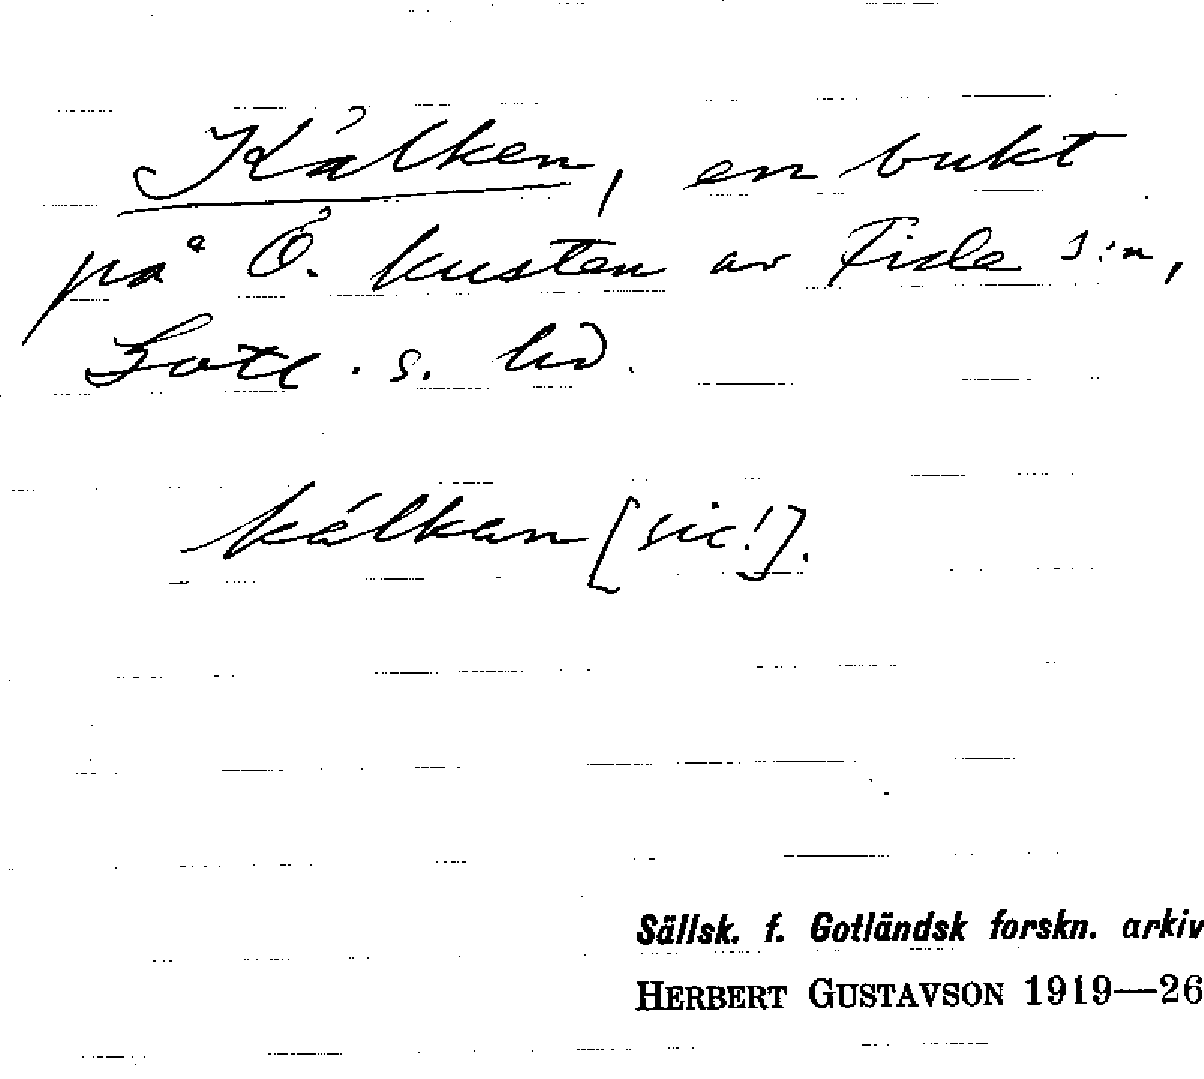 Kålken, en bukt
på Ö. kusten av Fide s:n,
Gotl. s. hd.
kálkan [sic!].
Sällsk. f. Gotländsk forskn. arkiv
HERBERT GUSTAVSON 1919—26